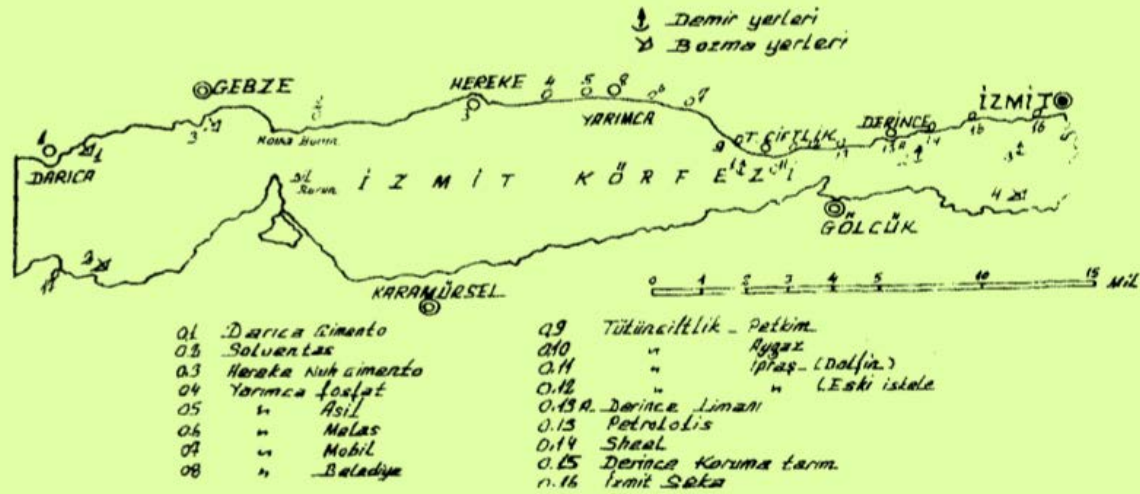 Demir yerleri
Bozma yerleri
GEBZE
HEREKE 4 5 8 6 7
YARIMCA
İZMİT
DERİNCE
T. ÇİFTLİK
DARICA
Dil Burun
İZMİT KÖRFEZİ
GÖLCÜK
KARAMÜRSEL
0 1 2 3 4 5 10 15 Mil
0.1 Darıca Çimento
0.2 Solventaş
0.3 Hereke Nuh Çimento
04 Yarımca fosfat
05 " Asil
0.6 " Melas
07 " Mobil
08 " Belediye
09 Tütünçiftlik - Petkim
0.10 " Aygaz
0.11 " ipraş - (Dolfin)
0.12 " " (Eski iskele
0.13A. Derince Limanı
0.13 Petrolofis
0.14 Sheal
0.15 Derince Koruma tarım
0.16 İzmit Seka